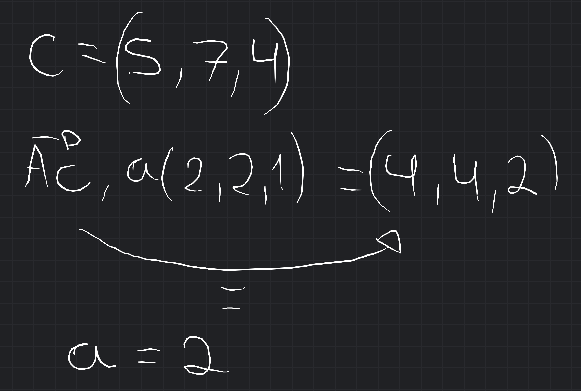 C = (5, 7, 4)
AC, a(2, 2, 1) = (4, 4, 2)
=
a = 2